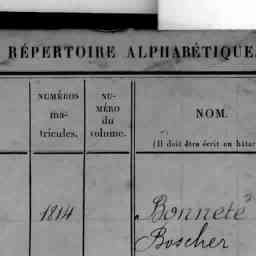 RÉPERTOIRE ALPHABÉTIQUE
NUMÉROS
ma-
tricules.
NU-
MÉRO
du
volume.
NOM.
(Il doit être écrit en bâtar
1814
Bonneté
Boscher